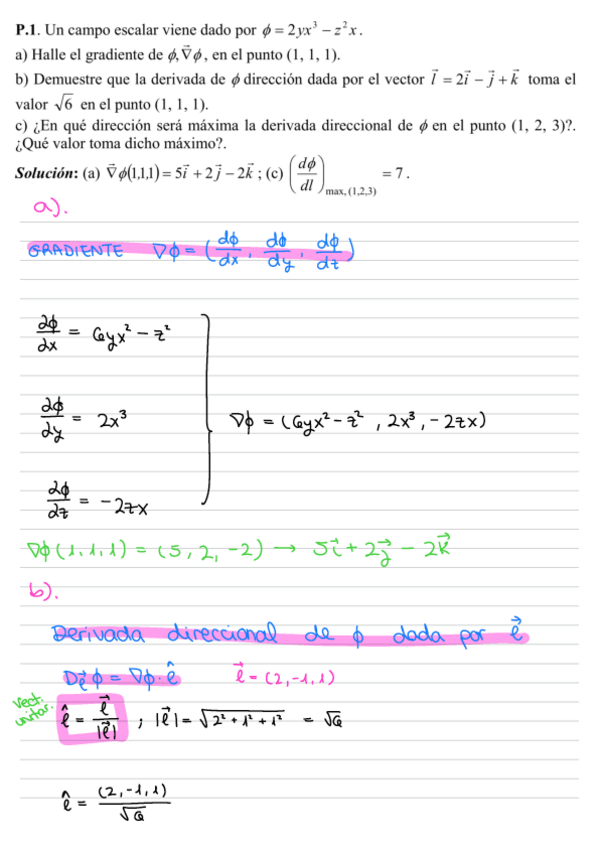 P.1. Un campo escalar viene dado por ϕ = 2yx³ − z²x.
a) Halle el gradiente de ϕ, ∇⃗ϕ, en el punto (1, 1, 1).
b) Demuestre que la derivada de ϕ dirección dada por el vector l⃗ = 2i⃗ − j⃗ + k⃗ toma el
valor √6 en el punto (1, 1, 1).
c) ¿En qué dirección será máxima la derivada direccional de ϕ en el punto (1, 2, 3)?.
¿Qué valor toma dicho máximo?.
Solución: (a) ∇⃗ϕ(1,1,1) = 5i⃗ + 2j⃗ − 2k⃗ ; (c) (dϕ/dl)max, (1,2,3) = 7 .
a).
GRADIENTE ∇ϕ = (dϕ/dx, dϕ/dy, dϕ/dz)
∂ϕ/∂x = 6yx² − z²
∂ϕ/∂y = 2x³
∇ϕ = (6yx² − z², 2x³, −2zx)
∂ϕ/∂z = −2zx
∇ϕ(1,1,1) = (5, 2, −2) → 5i⃗ + 2j⃗ − 2k⃗
b).
Derivada direccional de ϕ dada por ℓ⃗
Dℓ⃗ ϕ = ∇ϕ · ℓ̂ ℓ⃗ = (2,−1,1)
Vect. unitar. ℓ̂ = ℓ⃗/|ℓ⃗| ; |ℓ⃗| = √2² + 1² + 1² = √6
ℓ̂ = (2,−1,1)/√6